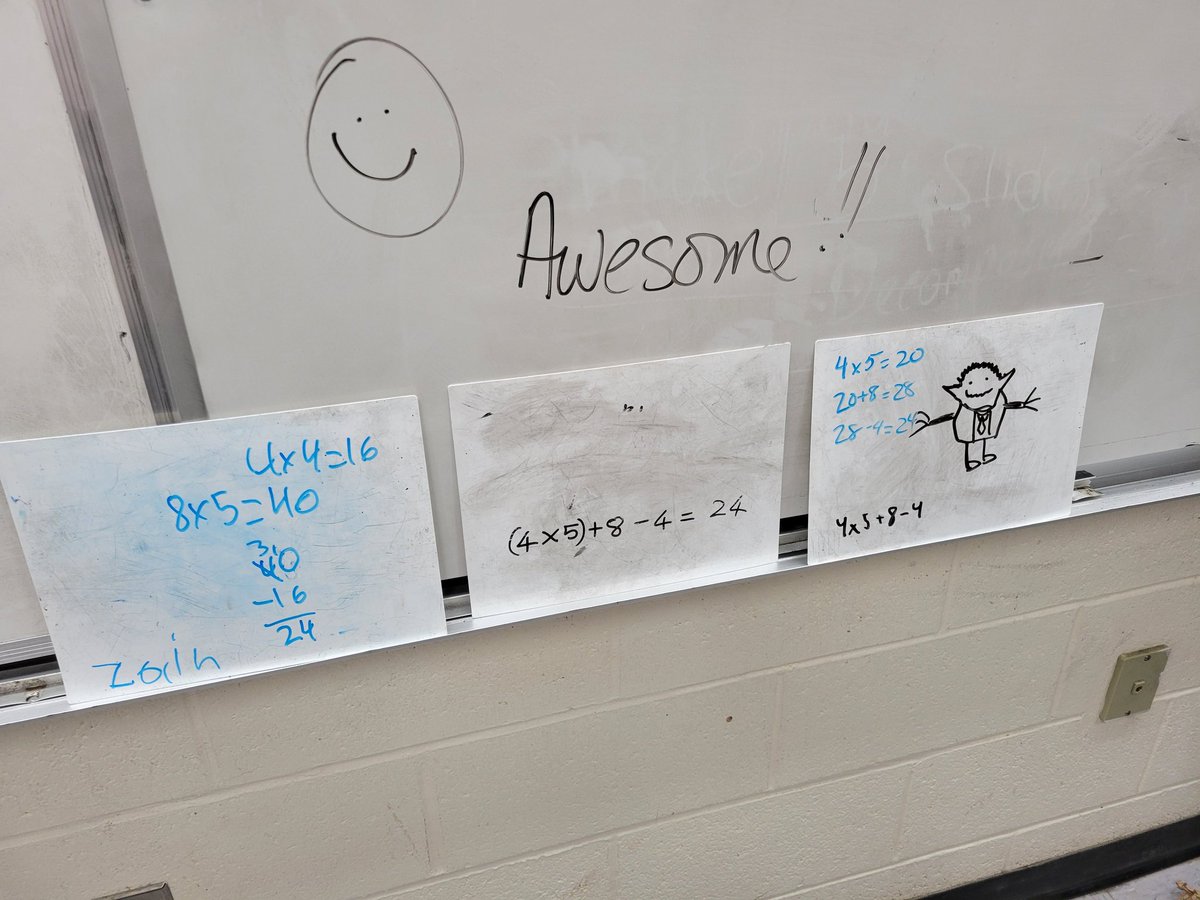 Awesome!!
4x4=16
8x5=40
40
-16
24
Zain
(4x5)+8-4= 24
4x5=20
20+8=28
28-4=24
4x5+8-4